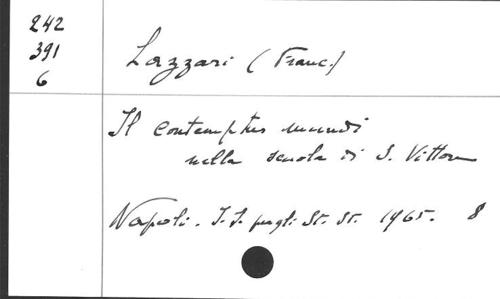 242
391
6
Lazzari (Franc.)
Il Contemptus mundi
nella scuola di S. Vittore
Napoli. I. I. per gli St. St. 1965. 8